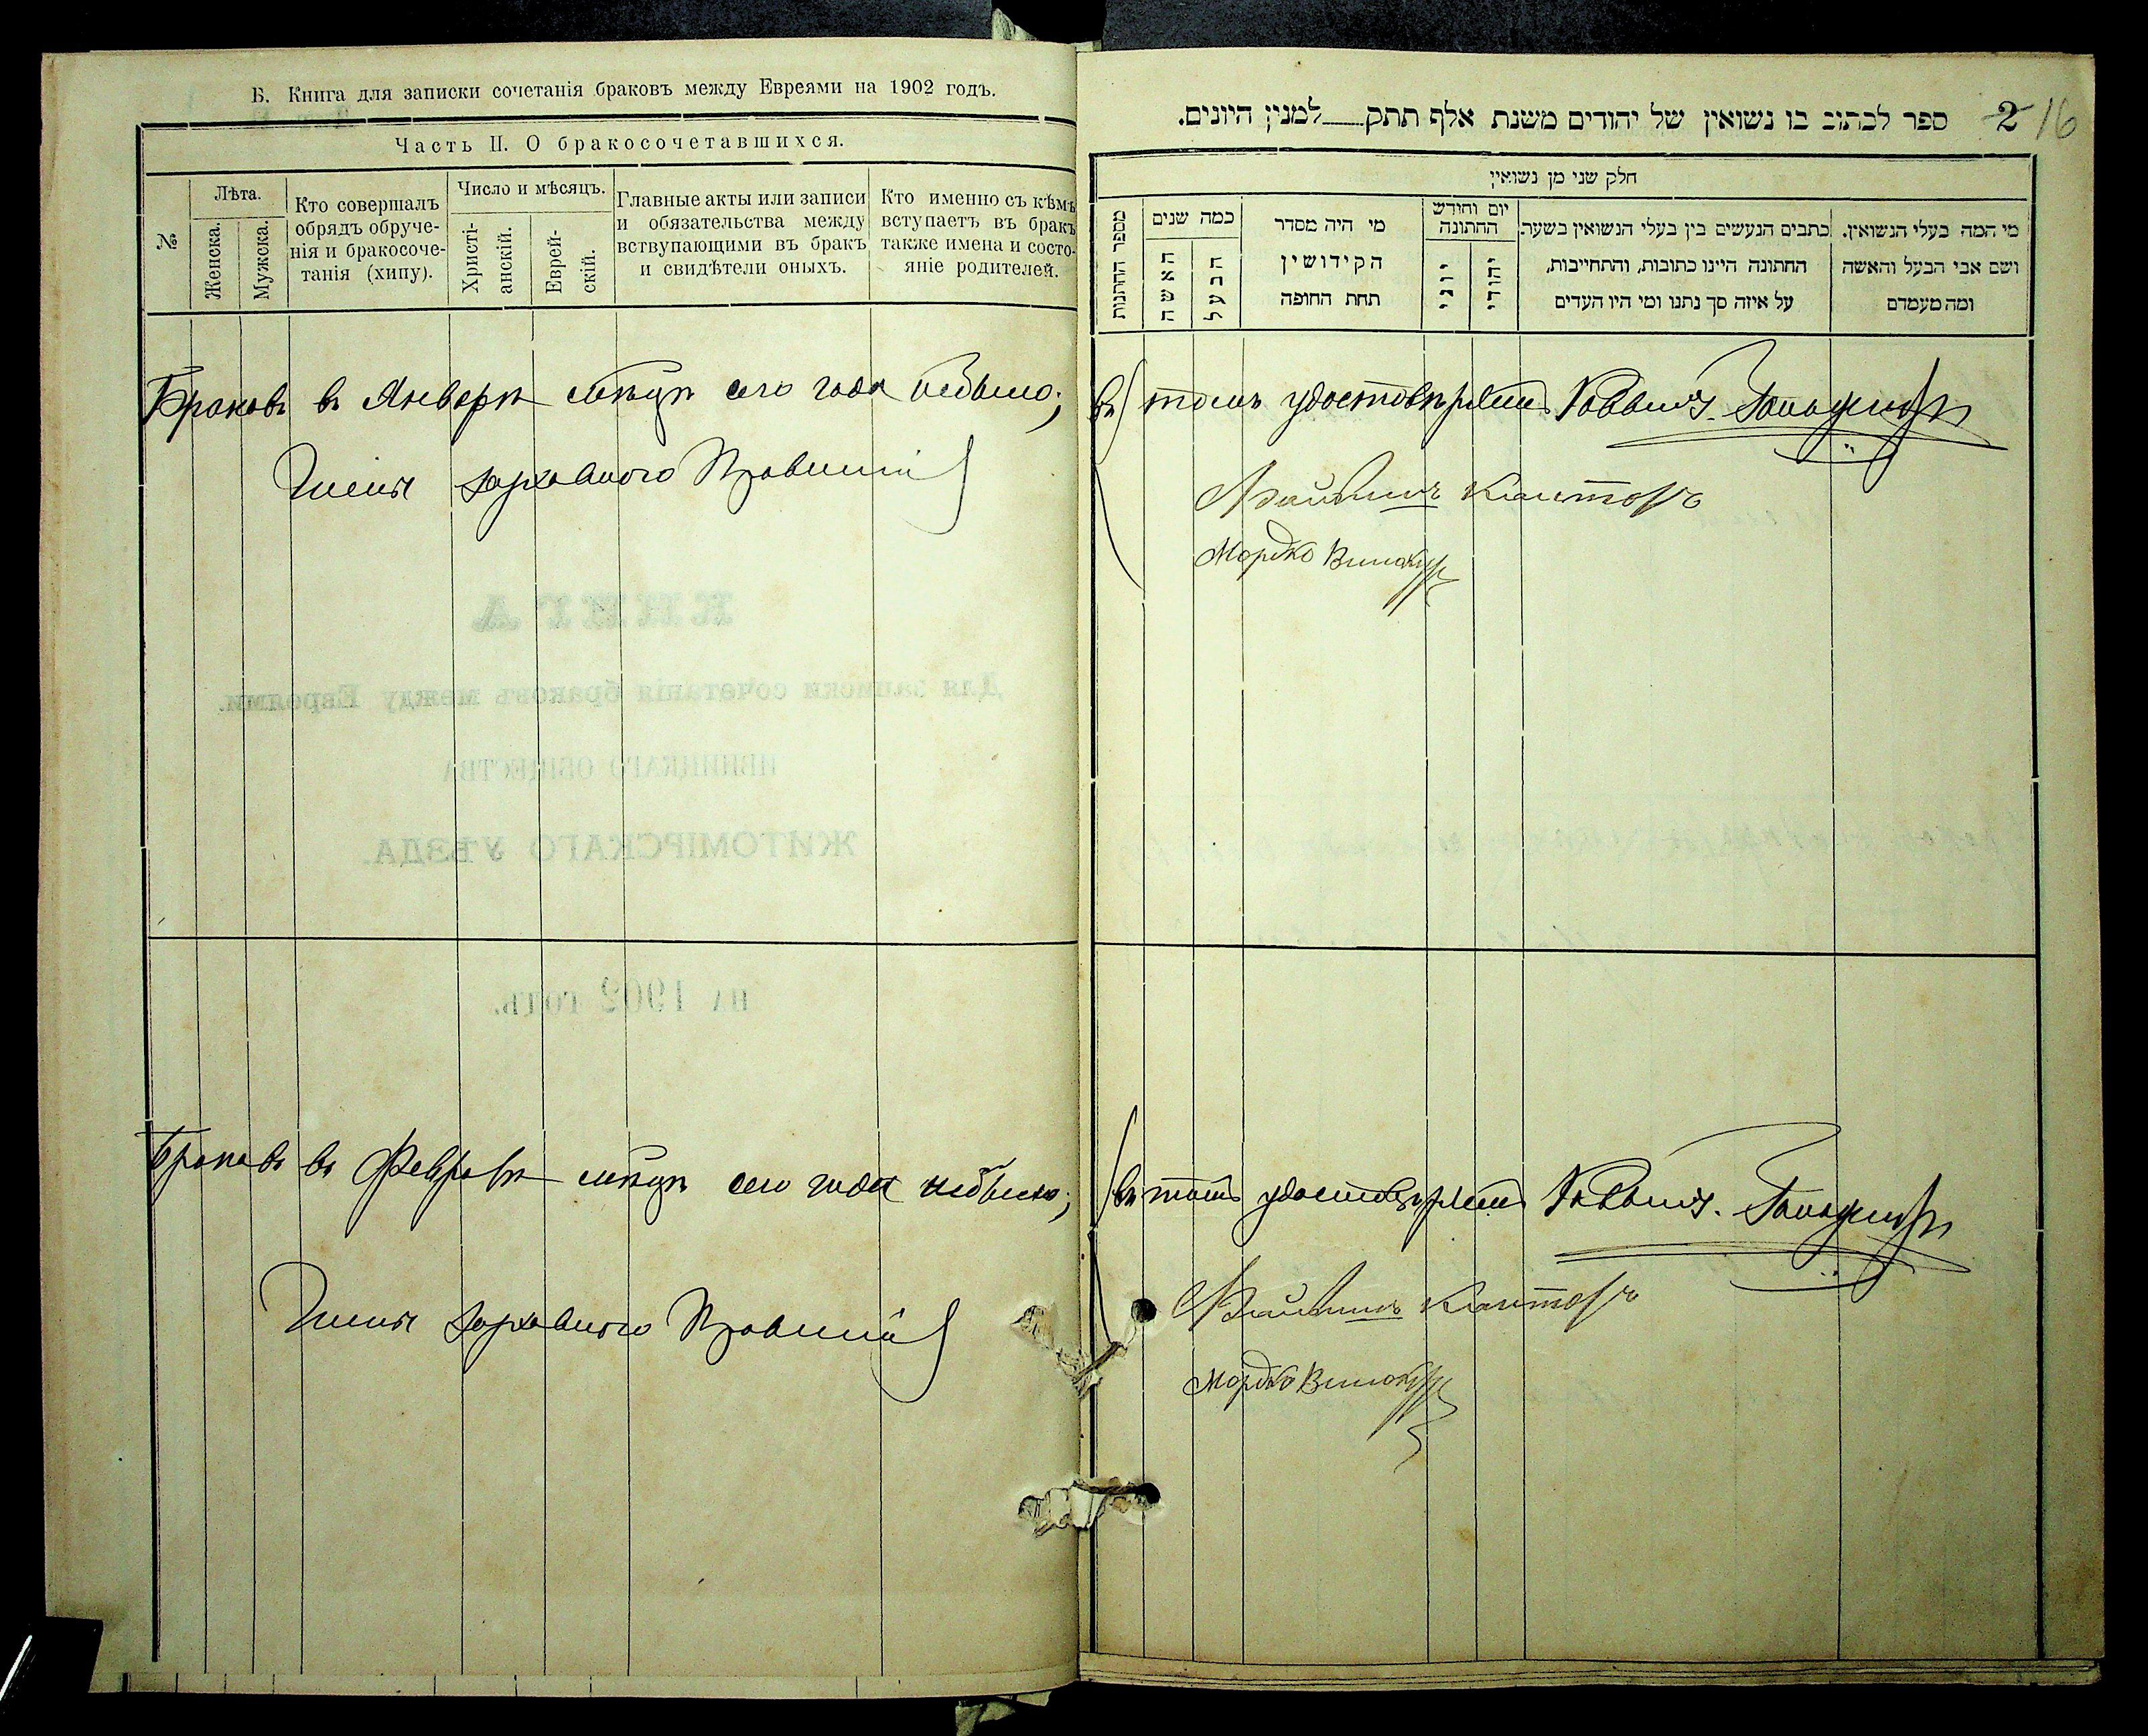 Б. Книга для записки сочетанія браковъ между Евреями на 1902 годъ.
Часть II. О бракосочетавшихся.
№
Лѣта.
Женска.
Мужска.
Кто совершалъ
обрядъ обруче-
нія и бракосоче-
танія (хипу).
Число и мѣсяцъ.
Христі-
анскій.
Еврей-
скій.
Главные акты или записи
и обязательства между
вствупающими въ бракъ
и свидѣтели оныхъ.
Кто именно съ кѣмъ
вступаетъ въ бракъ
также имена и состо-
яніе родителей.
Браковъ въ Январѣ м-цѣ сего года небыло;
Члены духовного Правленія
КНИГА
Для записки сочетанія браковъ между Евреями.
ИВНИЦКАГО ОБЩЕСТВА
ЖИТОМІРСКАГО УѢЗДА.
на 1902 годъ.
Браковъ въ Февралѣ м-цѣ сего года небыло;
Члены духовного Правленія
2 16
ספר לכתוב בו נשואין של יהודים משנת אלף תתק למנין היונים.
חלק שני מן נשואין
מספר החתנות
כמה שנים
האשה
הבעל
מי היה מסדר
הקידושין
תחת החופה
יום וחודש
החתונה
יוני
יהודי
כתבים הנעשים בין בעלי הנשואין בשעת
החתונה היינו כתובות, והתחייבות,
על איזה סך נתנו ומי היו העדים
מי המה בעלי הנשואין.
ושם אבי הבעל והאשה
ומה מעמדם
въ томъ удостовѣряемъ Раввинъ
Кантор
Мордко Винокур
въ томъ удостовѣряемъ Раввинъ
Кантор
Мордко Винокур